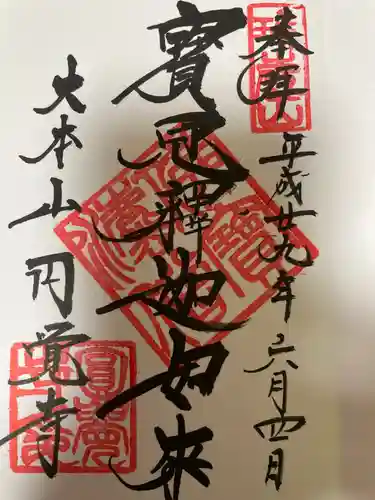 奉拝
平成廿九年六月四日
寳冠釋迦如来
大本山円覚寺